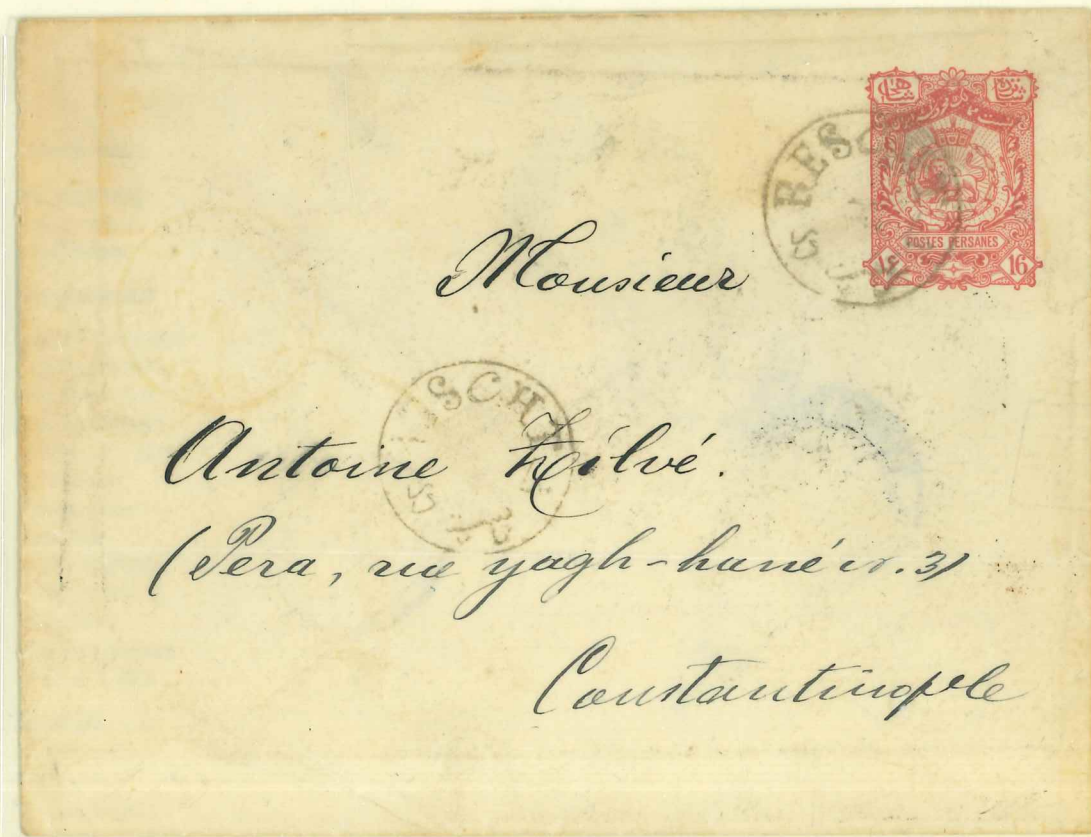 POSTES PERSANES
16
Monsieur
Antoine Zilvé.
(Pera, rue yagh-hané nr. 3)
Constantinople